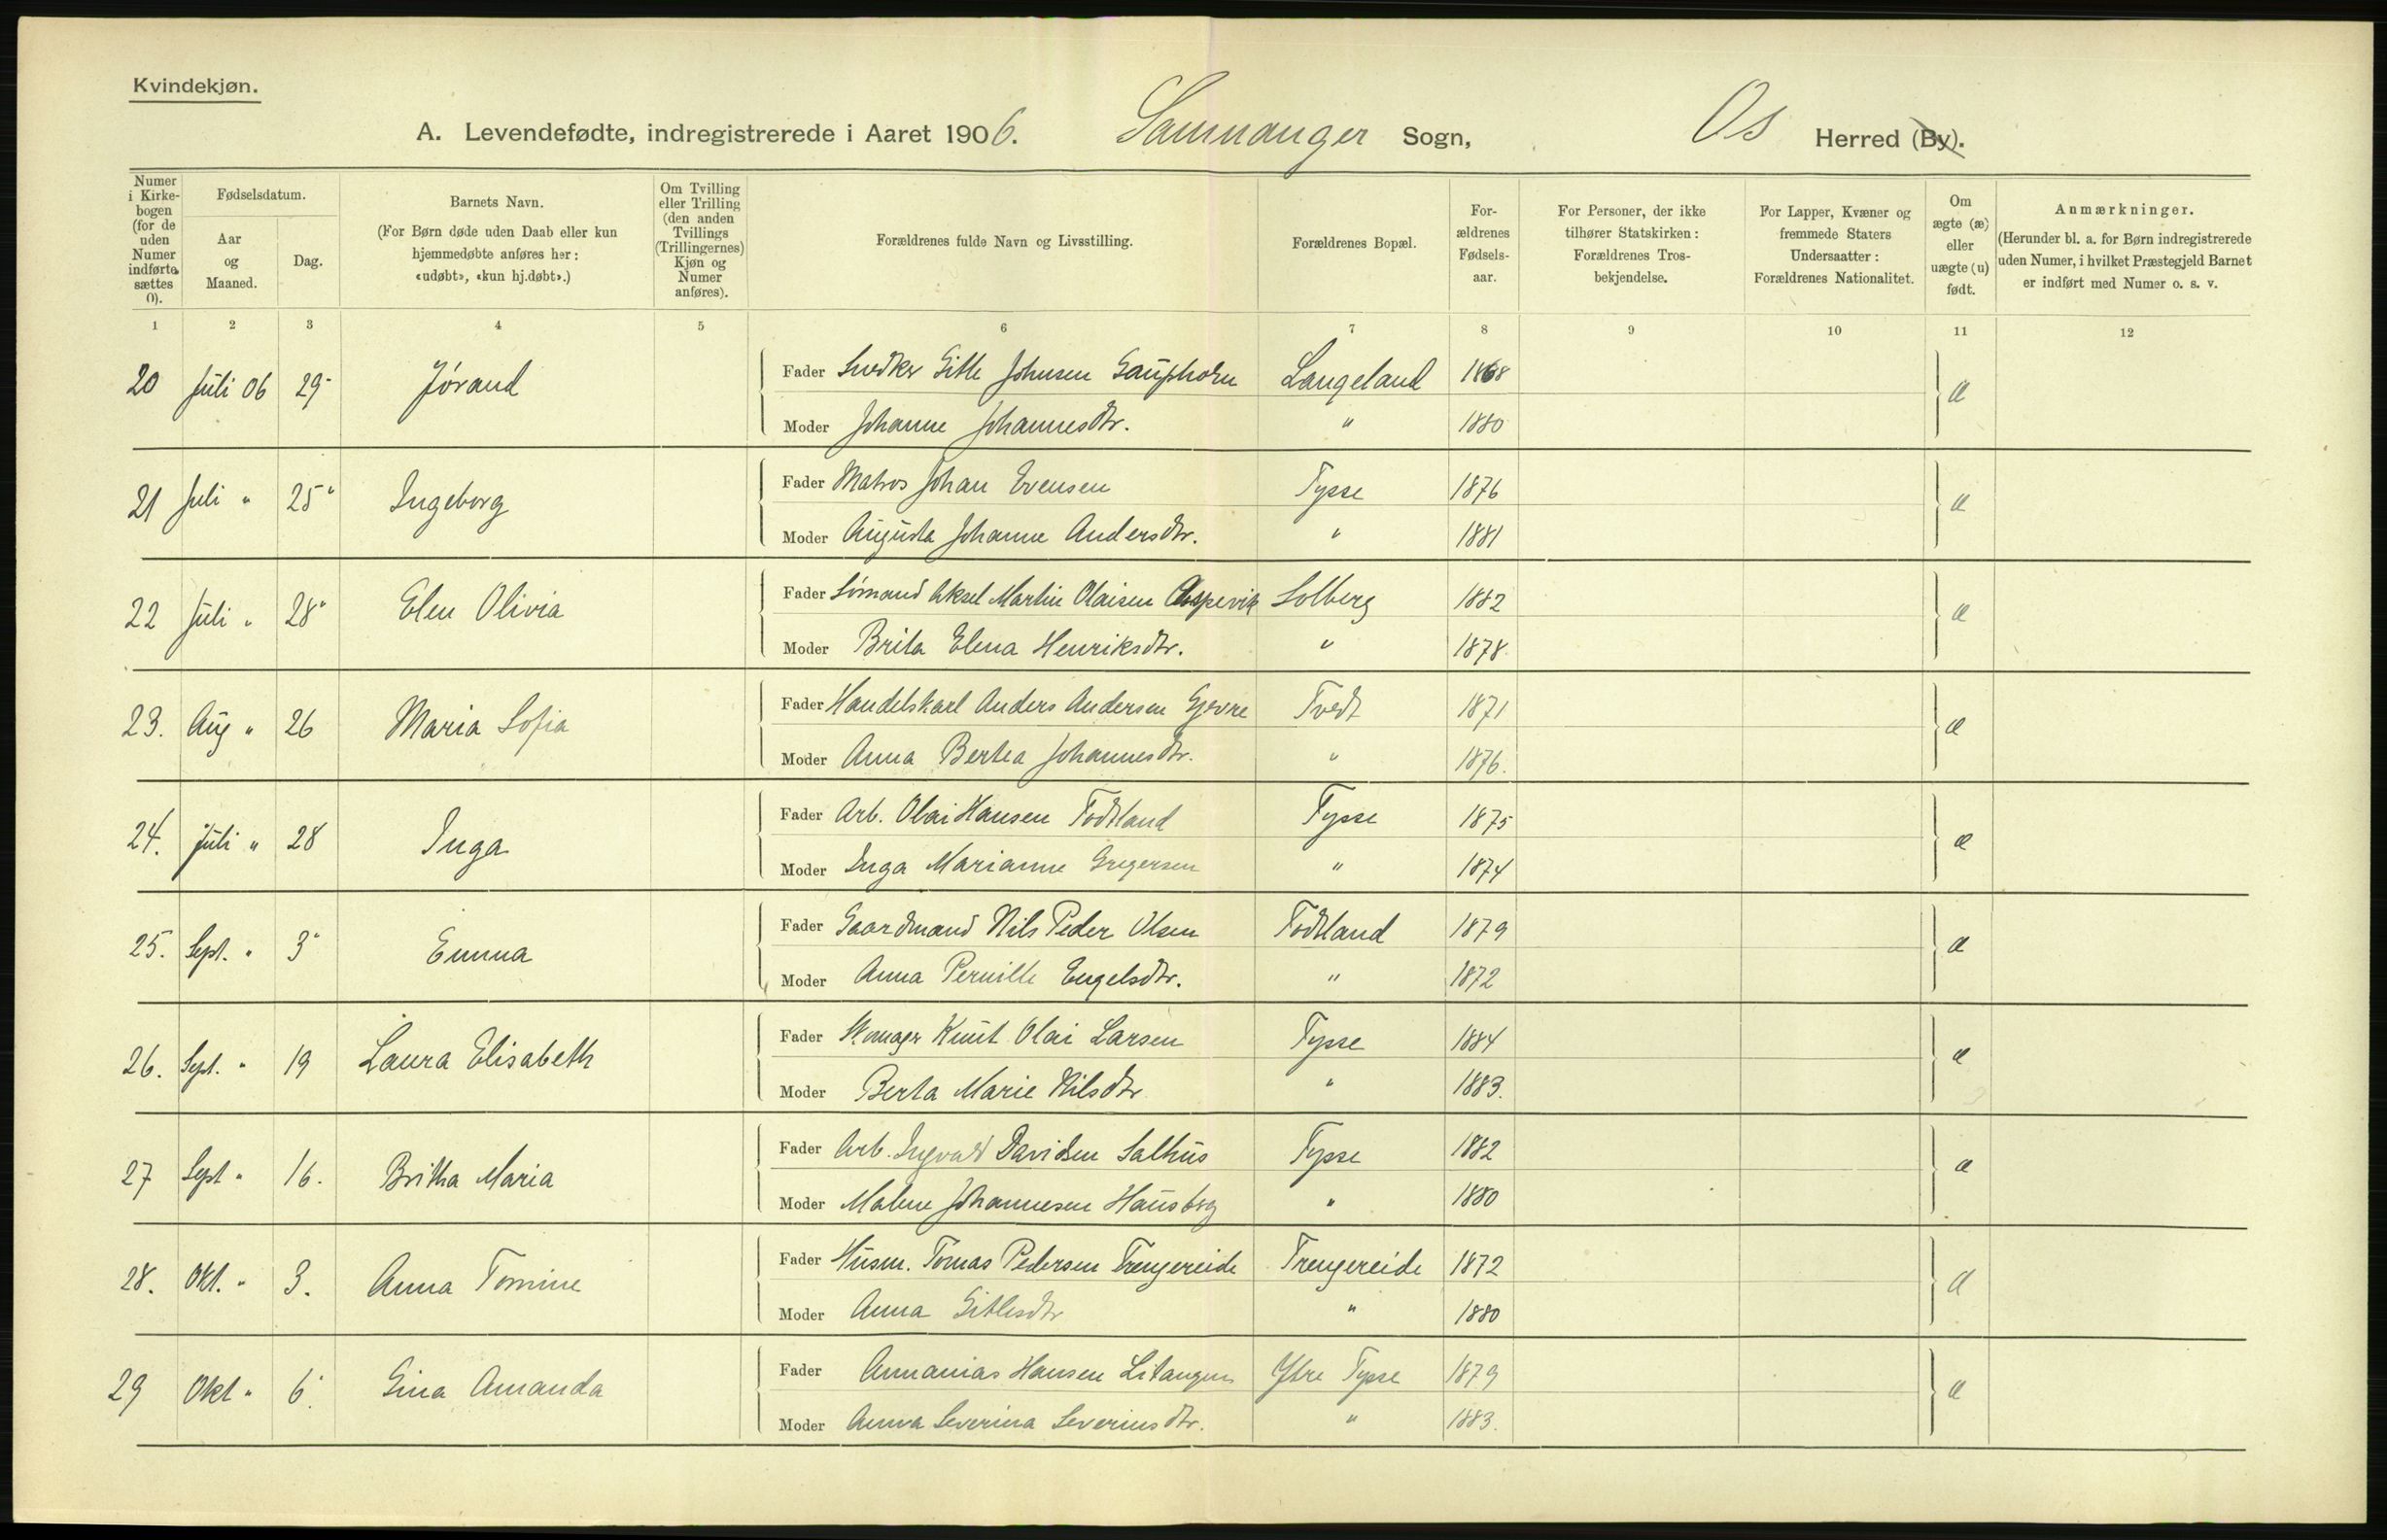 Kvindekjøn.
A. Levendefødte, indregistrerede i Aaret 1906. Samnanger Sogn, Os Herred (By).
Numer i Kirkebogen (for de uden Numer indførte sættes 0).
Fødselsdatum.
Aar og Maaned.
Dag.
Barnets Navn.
(For Børn døde uden Daab eller kun hjemmedøbte anføres her: «udøbt», «kun hj.døbt».)
Om Tvilling eller Trilling (den anden Tvillings (Trillingernes) Kjøn og Numer anføres).
Forældrenes fulde Navn og Livsstilling.
Forældrenes Bopæl.
Forældrenes Fødselsaar.
For Personer, der ikke tilhører Statskirken: Forældrenes Trosbekjendelse.
For Lapper, Kvæner og fremmede Staters Undersaatter: Forældrenes Nationalitet.
Om ægte (æ) eller uægte (u) født.
Anmærkninger.
(Herunder bl. a. for Børn indregistrerede uden Numer, i hvilket Præstegjeld Barnet er indført med Numer o. s. v.
1 2 3 4 5 6 7 8 9 10 11 12
20 Juli 06 29 Jórand Fader Snedker Gitle Johnsen Langeland 1868 æ
Moder Johanne Johannesdtr. " 1880
21 Juli " 25 Ingeborg Fader Matros Johan Evensen Tysse 1876 æ
Moder Augusta Johanne Andersdtr. " 1881
22 Juli " 28 Elen Olivia Fader Sómand Aksel Martin Olaisen Aspevik Solberg 1882 æ
Moder Brita Elena Henriksdtr. " 1878
23. Aug " 26 Maria Sofia Fader Handelskarl Anders Andersen Gjerre Tvedt 1871 æ
Moder Anna Bertea Johannesdtr. " 1876.
24. Juli " 28 Inga Fader Arb. Olai Hansen Todtland Tysse 1875 æ
Moder Inga Marianne Gregersen " 1874
25. Sept. " 3 Emma Fader Gaardmand Nils Peder Olsen Todtland 1879 æ
Moder Anna Pernille Engelsdtr. " 1872
26. Sept. " 19 Laura Elisabeth Fader Skomager Knut Olai Larsen Tysse 1884 æ
Moder Berta Marie Nilsdtr " 1883.
27 Sept " 16. Britha Maria Fader Arb. Ingvald Davidsen Salhus Tysse 1882 æ
Moder Malene Johannesen Hausberg " 1880
28. Okt. " 3. Anna Tomine Fader Husm. Tomas Pedersen Trengereide Trengereide 1872 æ
Moder Anna Gitlesdtr " 1880
29 Okt " 6. Gina Amanda Fader Annanias Hansen Ytre Tysse 1879 æ
Moder Anna Severina Severinsdtr. " 1883.